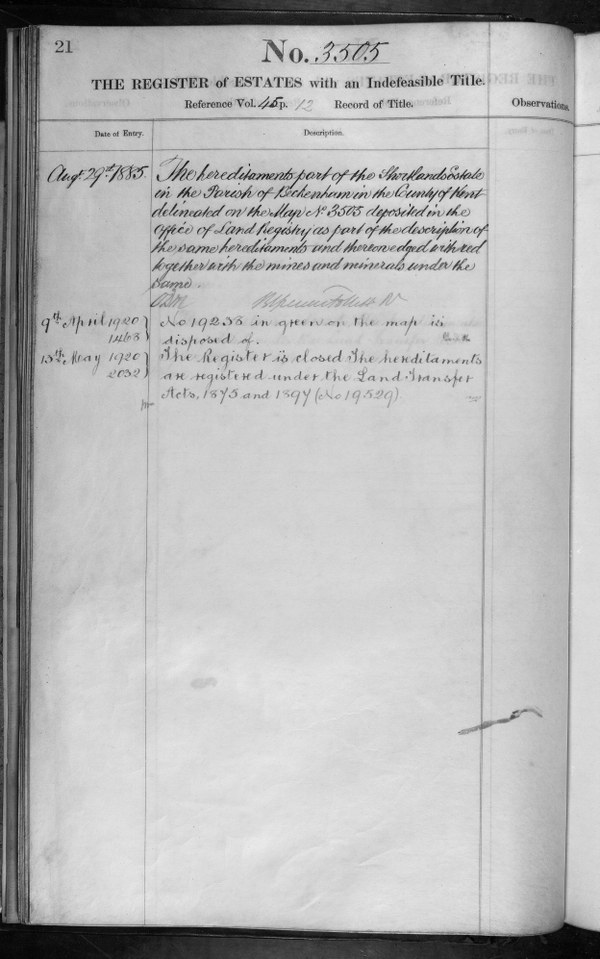 21
No. 3505
THE REGISTER of ESTATES with an Indefeasible Title.
Reference Vol. 45 p. 12 Record of Title.
Observations.
Date of Entry.
Description.
Augt. 29th. 1885.
The hereditaments part of the Shortlands Estate
in the Parish of Beckenham in the County of Kent
delineated on the Map No. 3505 deposited in the
Office of Land Registry as part of the description of
the same hereditaments and thereon edged with red
together with the mines and minerals under the
same.
9th April 1920
1463
No 19233 in green on the map is
disposed of.
13th May 1920
2032
The Register is closed The hereditaments
are registered under the Land Transfer
Acts, 1875 and 1897 (No 19529).